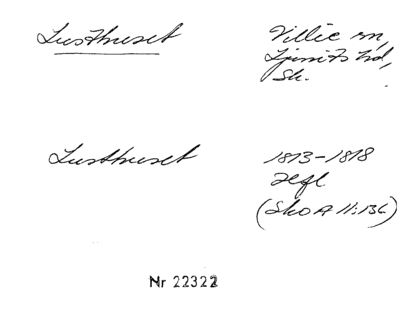 Lusthuset
Villie sn,
Ljunits hd,
Sk.
Lusthuset
1813-1818
Hfl
(Sko A II:136)
Nr 22322